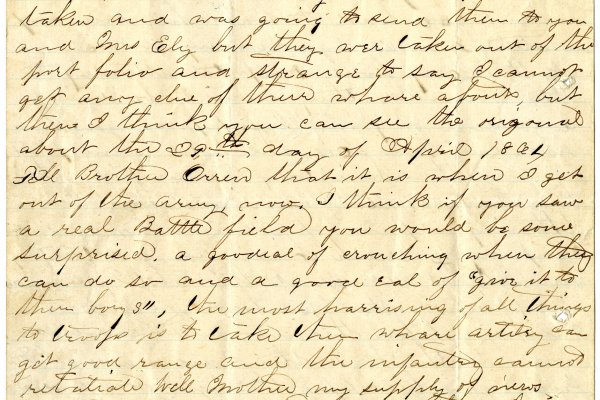 taken and was going to send them to you
and Mrs Ely but they wer taken out of the
port folio and, strange to say I cannot
get any clue of their whare about, but
then I think you can see the origonal
about the 29th day of April 1864
Tell Brother Orren that it is when I get
out of the army now, I think if you saw
a real Battle field you would be some
surprised. a goodeal of crouching when they
can do so and a good eal of "give it to
them boys", the most harrising of all things
to troops is to take them whare artilry can
get good range and the infantry cannot
retaliate Well Mother my supply of news